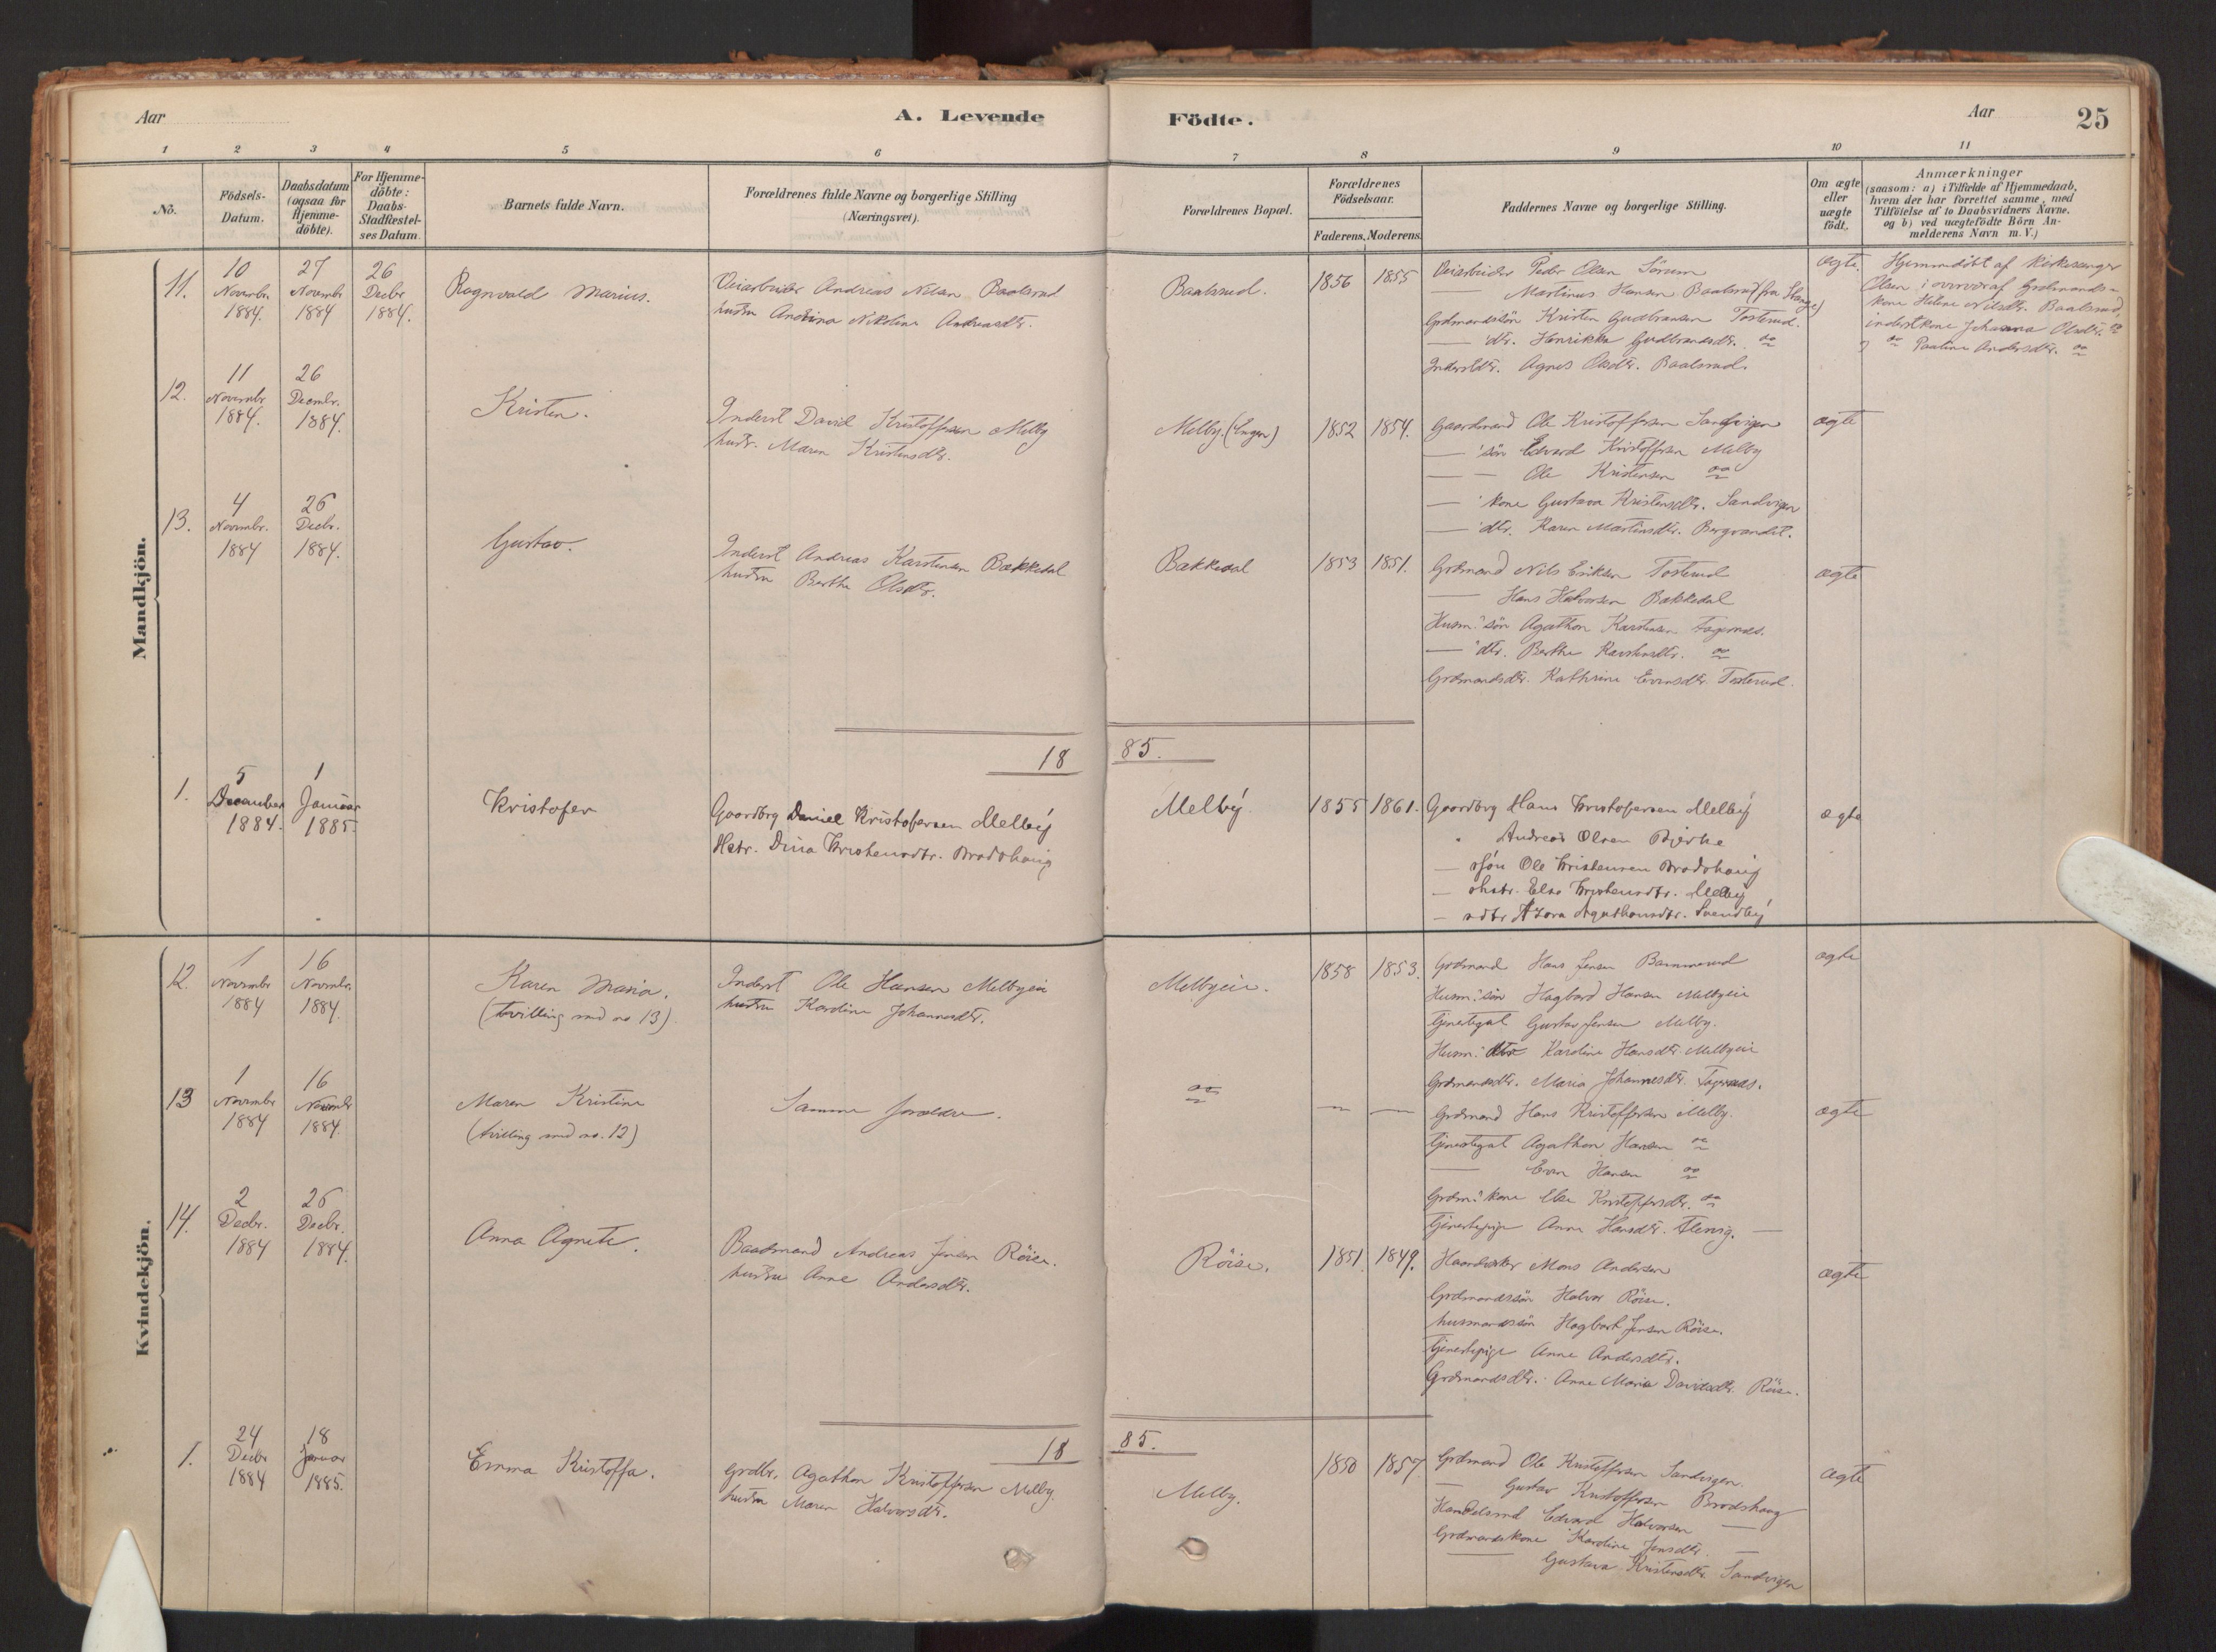 Aar
A. Levende
Födte.
Aar
25
1 2 3 4 5 6 7 8 9 10 11
No.
Födsels-Datum.
Daabsdatum (ogsaa for Hjemme-döbte).
For Hjemme-döbte: Daabs-Stadfæstel-ses Datum.
Barnets fulde Navn.
Forældrenes fulde Navne og borgerlige Stilling (Næringsvei).
Forældrenes Bopæl.
Forældrenes Födselsaar.
Faderens. Moderens.
Faddernes Navne og borgerlige Stilling.
Om ægte eller uægte födt.
Anmærkninger
(saasom: a) i Tilfælde af Hjemmedaab,
hvem der har forrettet samme, med
Tilföielse af to Daabsvidners Navne.
og b) ved uægtefödte Börn An-
melderens Navn m. V.)
Mandkjön.
11.
10 Novembr. 1884.
27 Novembr 1884
26 Decbr 1884.
Ragnvald Marius.
Veiarbeider Andreas Nilsen Baalsrud
hustru Andrina Nikoline Andreasdtr.
Baalsrud.
1856 1855
Veiarbeider Peder Olsen Sörum
— Martinus Hansen Baalsrud (fra Stange)
Grdmandssön Kristen Gudbransen Tosterud.
— dtr. Henrikke Gudbrandsdtr. "
Inderstdtr. Agnes Olsdtr. Baalsrud.
ægte.
Hjemmedöbt af Kirkesanger
Olsen i overvær af Grdmands-
kone Helene Nilsdtr. Baalsrud,
inderstkone Johanna Olsdtr. "
" Pauline Andersdtr. "
12.
11 Novembr 1884.
26 Decembr. 1884.
Kristen.
Inderst David Kristoffersen Melby
hustr. Maren Kristensdtr.
Melby. (Engen)
1852 1854.
Gaardmand Ole Kristoffersen Sandvigen
— sön Edvard Kristoffersen Melby
— — Ole Kristensen "
— kone Gustava Kristensdtr. Sandvigen
— dtr. Karen Martinsdtr. Bergvandet.
ægte
13.
4 Novembr. 1884
26 Decbr. 1884.
Gustav.
Inderst Andreas Karstensen Bækkedal
hustru Berthe Olsdtr.
Bækkedal
1853 1851.
Grdmand Nils Eriksen Tosterud
— Hans Halvorsen Bækkedal
Husm. sön Agathon Karstensen Fagernæs.
— dtr. Berthe Karstensdtr. "
Grdmandsdtr. Kathrine Evensdtr. Tosterud.
ægte
18 85.
1.
5 December 1884.
1 Januar 1885.
Kristofer
Gaardbrg Daniel Kristofersen Melbÿ
Hstr. Dina Kristensdtr. Brodshaug
Melbÿ.
1855 1861.
Gaardbrg Hans Kristofersen Melbÿ
" Andreas Olsen Bjerke
— ssön Ole Kristensen Brodshaug
— shstr. Else Kristensdtr. Melbÿ
— sdtr Azora Agathonsdtr. Svendbÿ
ægte
Kvindekjön.
12.
1 Novembr 1884
16 Novmbr. 1884.
Karen Maria.
(tvilling med no 13).
Inderst Ole Hansen Melbyeie
hustru Karoline Johannesdtr.
Melbyeie.
1858 1853.
Grdmand Hans Jensen Bammerud
Husm. sön Hagbard Hansen Melbyeie
Tjenestegut Gustav Jensen Melby.
Husm. dtr Karoline Hansdtr. Melbyeie
Grdmandsdtr. Maria Johannesdtr. Fagernæs.
ægte
13
1 Novembr 1884
16 Novembr 1884.
Maren Kristine
(tvilling med no. 12)
Samme forældre.
"
— —
Grdmand Hans Kristoffersen Melby.
Tjenestegut Agathon Hansen "
— Even Hansen "
Grdm. kone Else Kristoffersdtr. "
Tjenestepige Anne Hansdtr. —
ægte
14.
2 Decbr. 1884
26 Decbr. 1884.
Anna Agnete.
Baadsmand Andreas Jensen Röise.
hustru Anne Andersdtr.
Röise.
1851. 1849.
Haandverker Mons Andersen
Grdmandssön Halvor Röise.
husmandssön Hagbart Jensen Röise.
Tjenestepige Anne Andersdtr.
Grdmandsdtr. Anne Marie Davidsdtr. Röise.
ægte
18 85.
1.
24 Decbr 1884
18 Januar 1885.
Emma Kristoffa.
Grdbr. Agathon Kristoffersen Melby.
hustru Maren Halvorsdtr.
Melby.
1850 1857
Grdmand Ole Kristoffersen Sandvigen.
— Gustav Kristoffersen Brodshaug
Handelsmd Edvard Halvorsen —
Grdmandskone Karoline Jensdtr. —
— Gustava Kristensdtr. Sandvigen
ægte